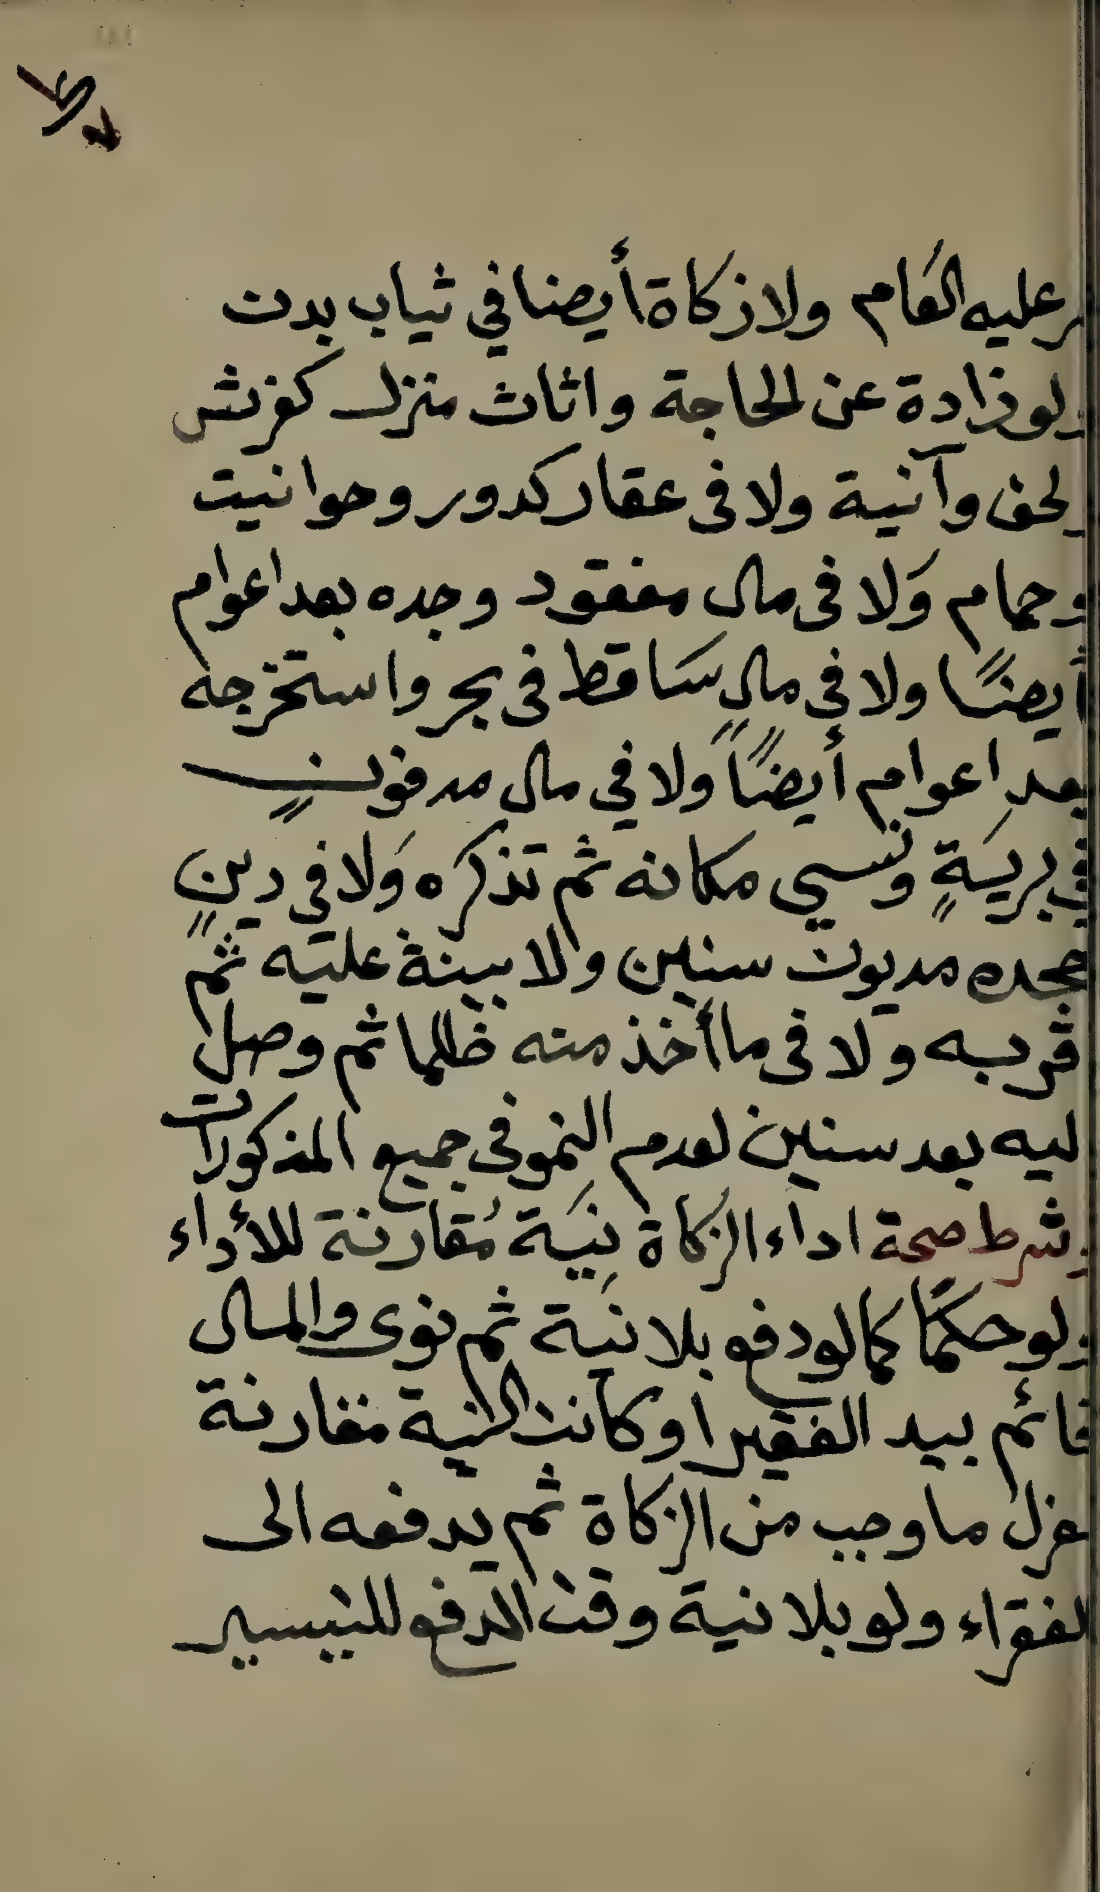 عليه العام ولا زكاة أيضا في ثياب بدن
ولو زادة عن الحاجة واثاث منزل كفرش
ولحف وآنية ولا فى عقار كدور وحوانيت
وحمام وَلا فى مال مفقود وجده بعد اعوام
أيضًا ولا في مالٍ سَاقط فى بحر واستخرجه
بعد اعوام أيضًا ولا في مال مدفونٍ
في بريَةٍ ونسي مكانه ثم تذكره وَلا فى دينٍ
جحده مديون سنين ولا بينة عليه ثم
قر به ولا فى ما أخذ منه ظلما ثم وصل
ليه بعد سنين لعدم النمو فى جميع المذكورات
وشرط صحة اداء الزكاة نِيَة مُقارنة للأداء
ولو حكمًا كما لو دفع بلا نيَة ثم نوى والمال
قائم بيد الفقير او كانت النية مقارنة
عزل ما وجب من الزكاة ثم يدفعه الى
الفقراء ولو بلا نية وقت الدفع للتيسير